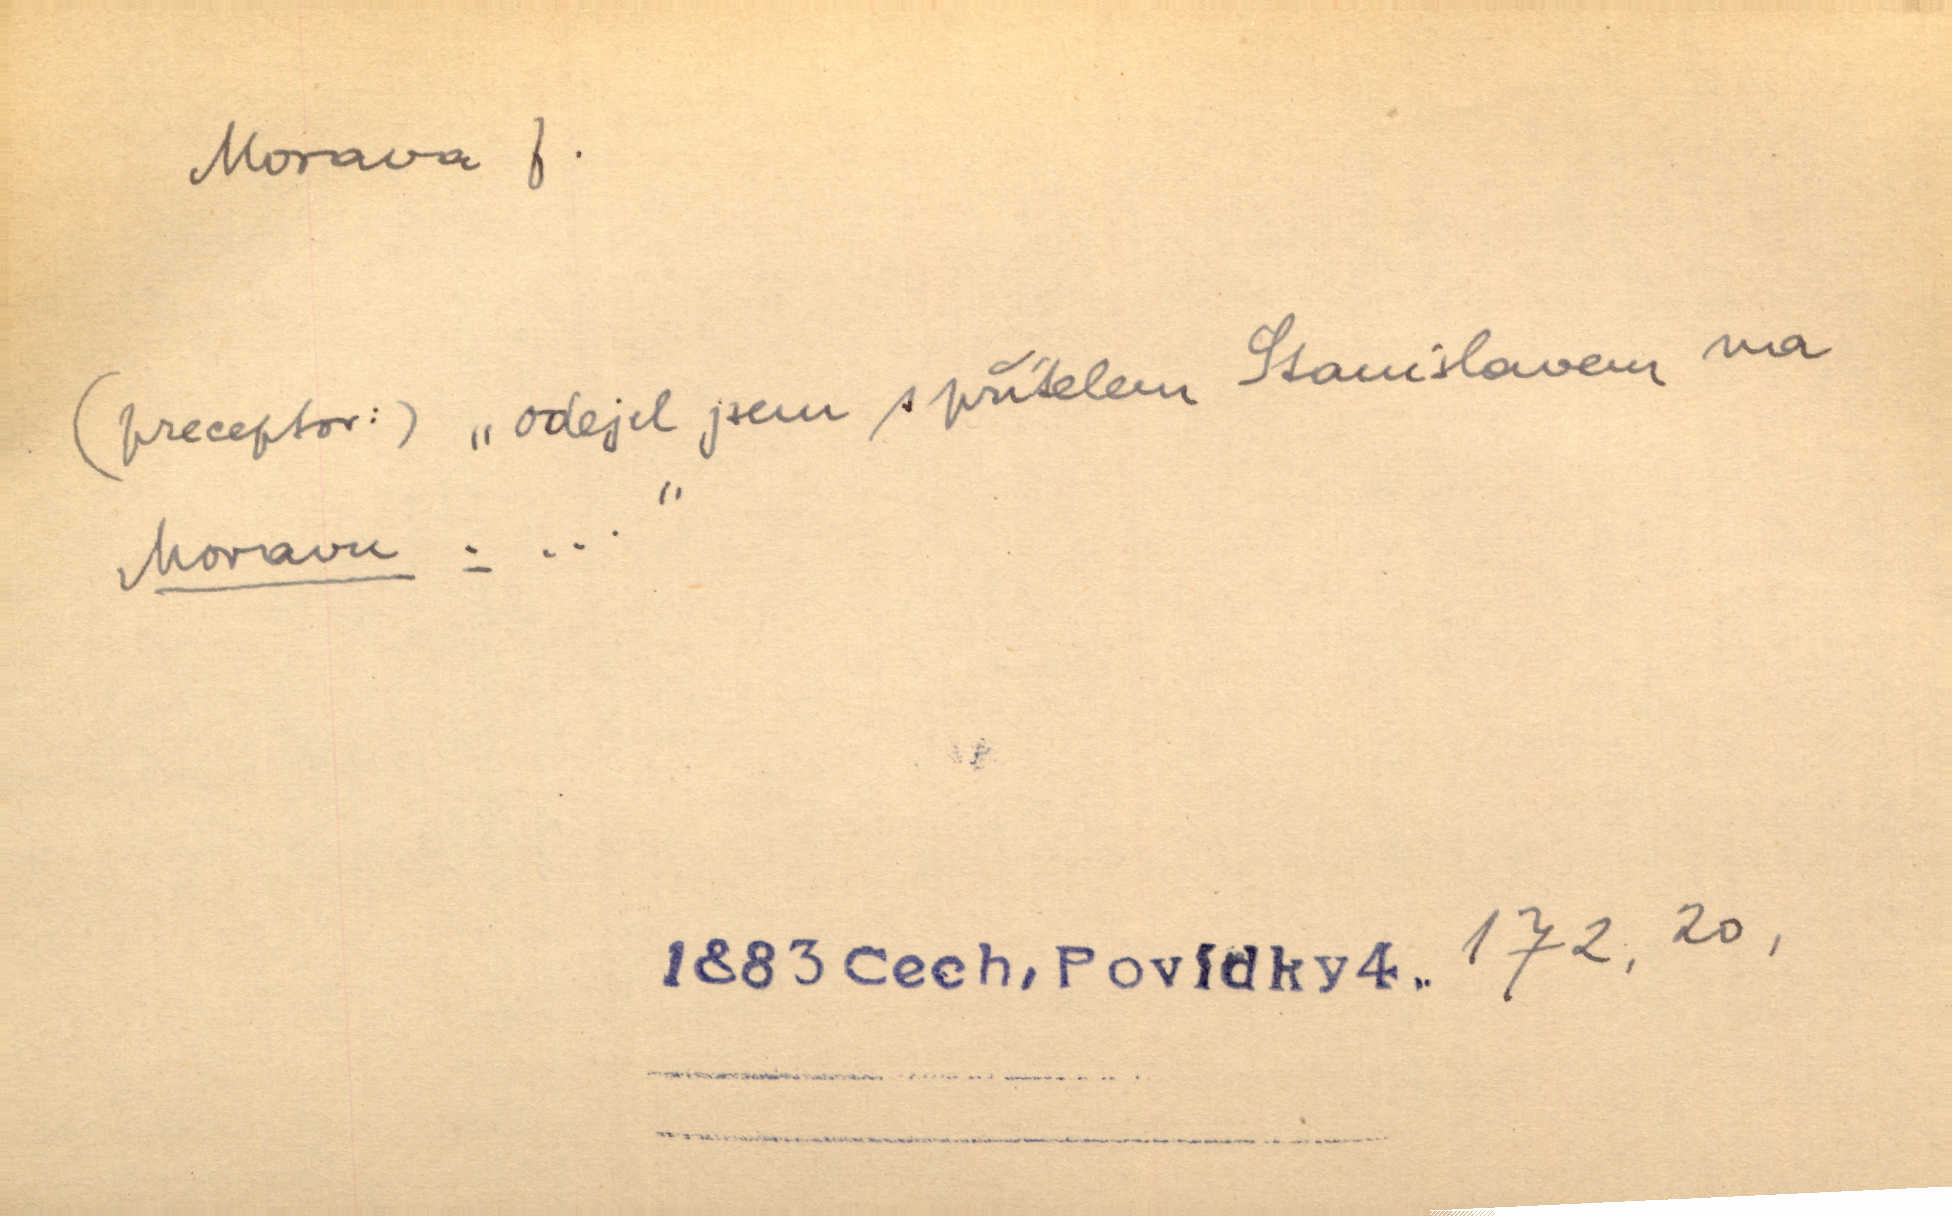 Morava f.
(preceptor:) „odejel jsem s přítelem Stanislavem na
Moravu : ..."
1883 Cech, Povídky 4.. 172, 20,